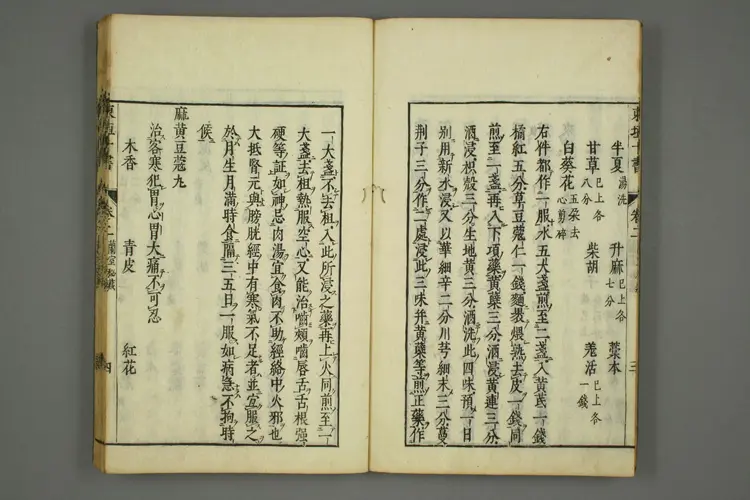 東垣十書 卷二 三
半夏 湯洗 升麻 已上各七分 藁本
甘草 已上各八分 柴胡 羗活 已上各一錢
白葵花 五朵去心剪碎
右件都作一服水五大盞煎至二盞入黃芪一錢
橘紅五分草豆蔻仁一錢麵裹煨熟去皮一錢同
煎至一盞再入下項藥黃蘗三分酒浸黃連三分
酒浸枳殼三分生地黃三分酒洗此四味預一日
別用新水浸又以華細辛二分川芎細末三分蔓
荆子三分作二處浸此三味并黃蘗等煎正藥作
一大盞不去柤入此所浸之藥再上火同煎至一
大盞去柤熱服空心又能治嚙頰嚙唇舌舌根强
硬等証如神忌肉湯宜食肉不助經絡中火邪也
大抵腎元與膀胱經中有寒氣不足者並宜服之
於月生月滿時食隔三五日一服如病急不拘時
候
麻黃豆蔻丸
治客寒犯胃心胃大痛不可忍
木香 青皮 紅花
東垣十書 卷二 四